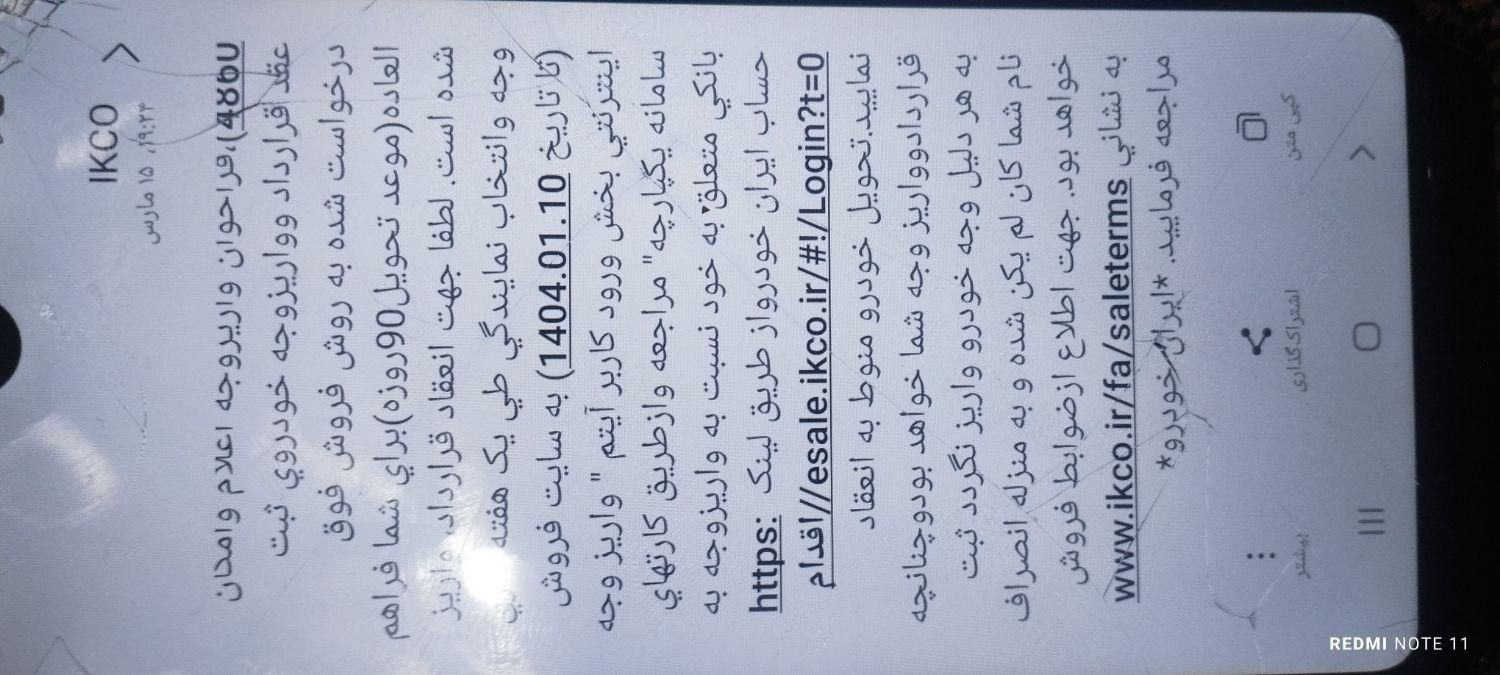 IKCO
۱۹:۲۴، ۱۵ مارس
فراخوان واریزوجه اعلام وامکان
عقد قرارداد وواریزوجه خودروي ثبت
درخواست شده به روش فروش فوق
العاده(موعد تحویل90روزه)براي شما فراهم
شده است. لطفا جهت انعقاد قرارداد، واریز
وجه وانتخاب نمایندگي طي یک هفته
(تا تاریخ 1404.01.10) به سایت فروش
اینترنتي بخش ورود کاربر آیتم " واریز وجه
سامانه یکپارچه" مراجعه وازطریق کارتهاي
بانکي متعلق به خود نسبت به واریزوجه به
حساب ایران خودرواز طریق لینک https:
//esale.ikco.ir/#!/Login?t=0اقدام
نمایید.تحویل خودرو منوط به انعقاد
قراردادوواریز وجه شما خواهد بودوچنانچه
به هر دلیل وجه خودرو واریز نگردد ثبت
نام شما کان لم یکن شده و به منزله انصراف
خواهد بود. جهت اطلاع ازضوابط فروش
به نشاني www.ikco.ir/fa/saleterms
مراجعه فرمایید. *ایران خودرو*
کپی متن
اشتراک‌گذاری
بیشتر
REDMI NOTE 11